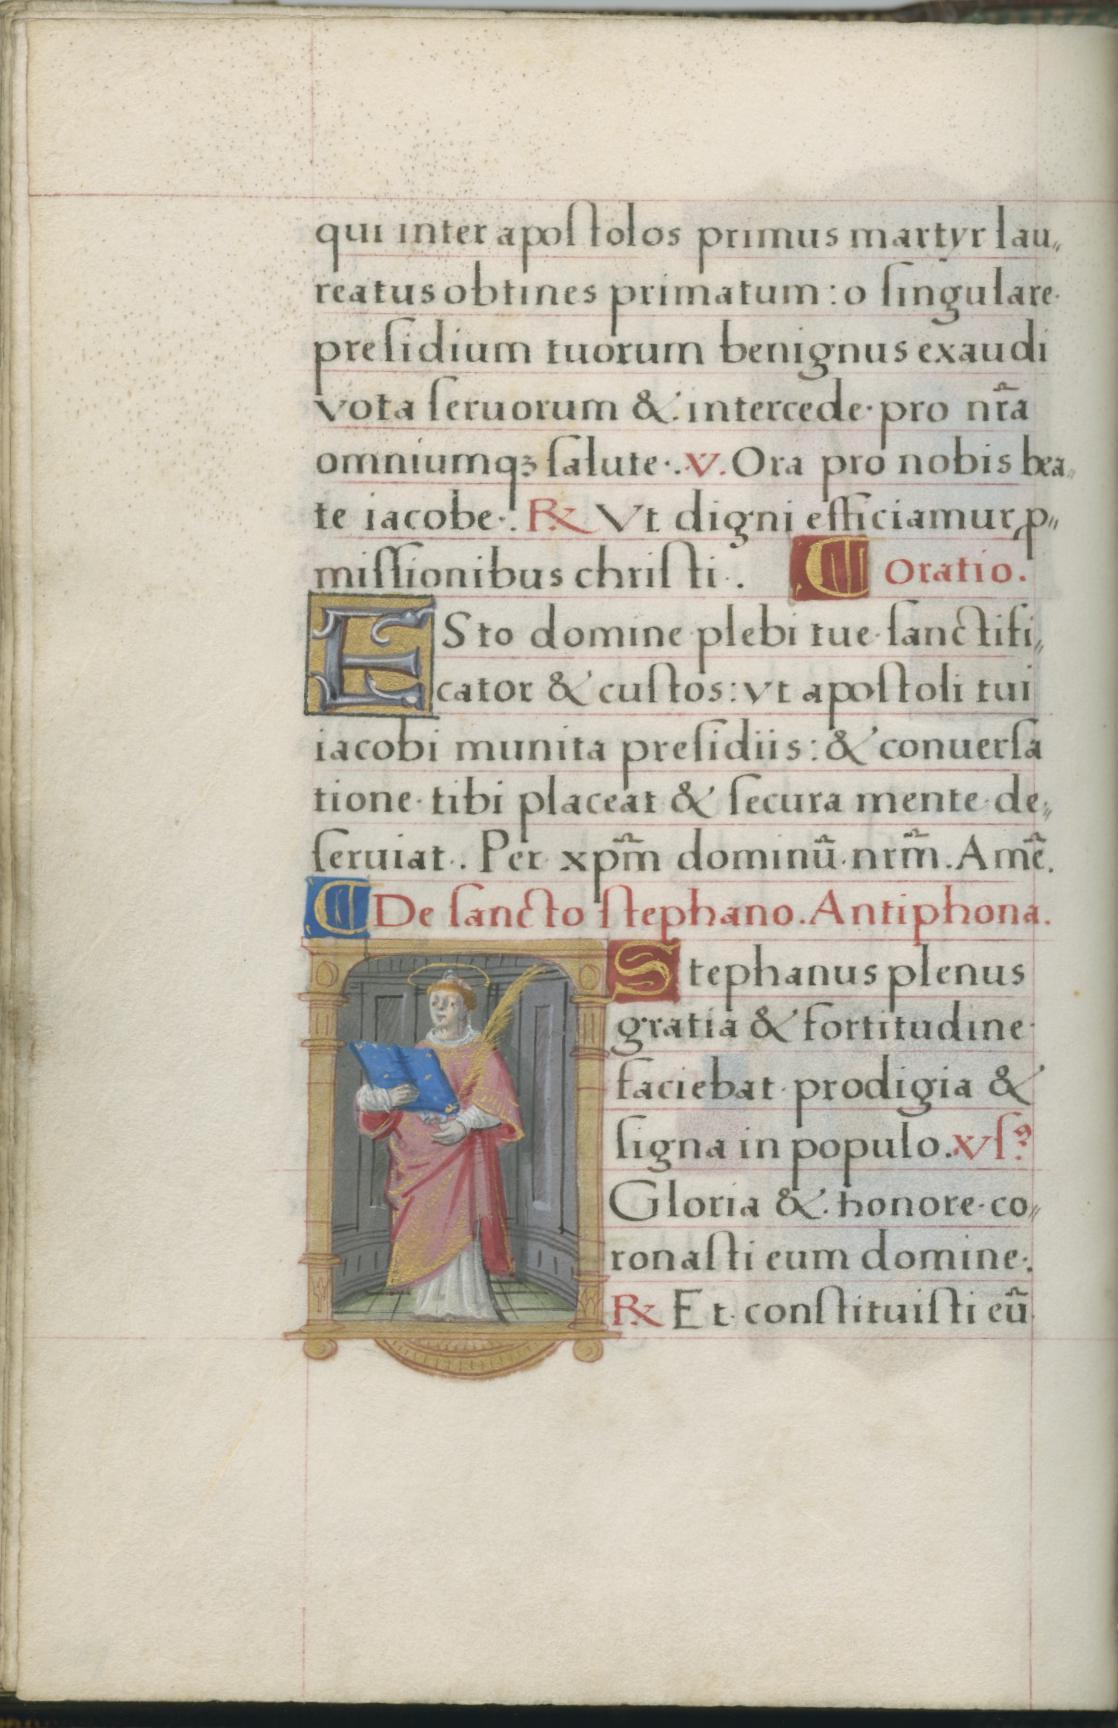 qui inter apoſtolos primus martyr lau„
reatus obtines primatum : o ſingulare·
preſidium tuorum benignus exaudi
vota ſeruorum &. intercede· pro nr̃a
omniumqꝫ ſalute·. v. Ora pro nobis bea„
te iacobe·. ℟ Vt digni efficiamur ꝓ„
miſſionibus chriſti·. ¶ Oratio.
ESto domine plebi tue· ſanctifi„
cator & cuſtos : vt apoſtoli tui
iacobi munita preſidiis : & conuerſa
tione· tibi placeat & ſecura mente· de„
ſeruiat·. Per xpm̃ dominũ· nrm̃. Amẽ.
¶ De ſancto ſtephano. Antiphona.
Stephanus plenus
gratia & fortitudine·
faciebat· prodigia &
ſigna in populo. vſꝰ
Gloria &. honore· co„
ronaſti eum domine·.
℟ Et· conſtituiſti eũ